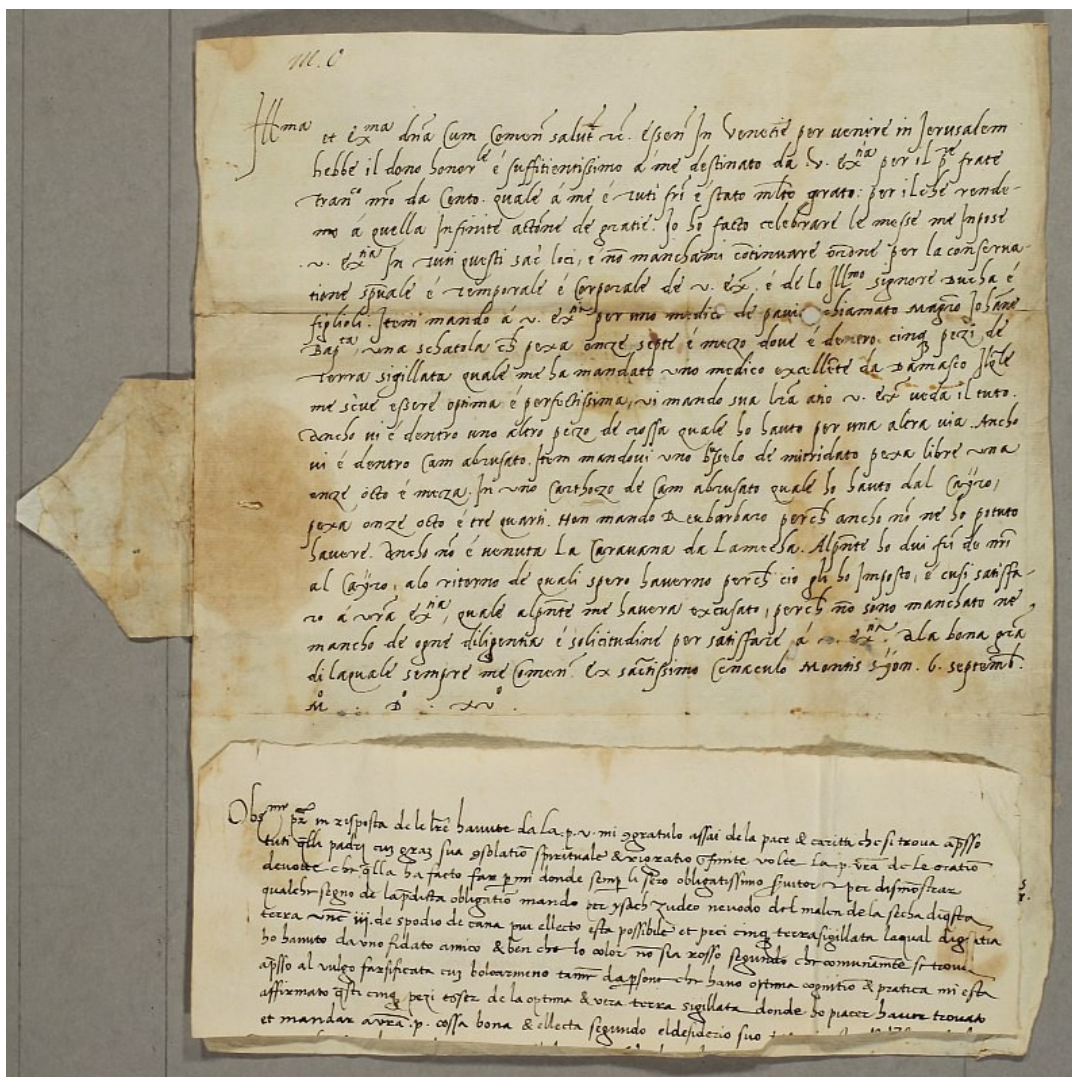 M. O
Ill^ma et ex^ma dna Cum Comen salut rc. Essen In Venetie per venire in Jerusalem
hebbe il dono honor^le é suffitientissimo á me destinato da .v. ex^tia per il p^re frate
Fran^co nro da Cento. quale á me é tuti fri é stato mlto grato: per il che rende-
mo á quella Infinite actóne de gratie. Io ho facto celebrare le messe me Impose
.v. ex^tia In tuti questi sac loci, é nó manchami cótinuare orone per la conserva-
tione spuale é temporale é Corporale de v. ex. é de lo Ill^mo signore Ducha é
figlioli. Item mando á v. ex^tia per uno medico de pavia chiamato Magro Johane
Bap^ta, una schatola ch pexa onze septe é mezo dove é dentro cinq pezi de
terra sigillata quale me ha mandato uno medico excellête da Damasco Ilqle
me scive essere optima é perfectissima, vi mando sua lra ació v. ex veda il tuto.
Ancho vi é dentro uno altro pezo de rossa quale ho hauto per una altra via. Ancho
vi é dentro Cam abrusato. Item mandovi uno bsselo de mitridato pexa libre una
onze octo é meza. In uno Carthozo de Cam abrusato quale ho hauto dal Cayro,
pexa onze octo é tre quarti. Non mando Reubarbaro perch ancho nó ne ho potuto
havere. Ancho nó é venuta La Caravana da Lamecha. Alpnte ho dui fri de nri
al Cayro, alo ritorno de quali spero haverno perch cio gli ho Imposto, é cusi satisfa-
ro á vra ex^tia, quale alpnte me havera excusato, perch nó sono manchato ne
mancho de ogne diligentia é solicitudine per satisfare á v. ex^tia. Ala bona gra
di laquale sempre me Comen. Ex sactissimo Cenaculo Montis Syon. 6. septemb.
M^o . D^o . xv^o .
Obs^mo pr in risposta de le lre havute da la .p.v. mi cgratulo assai de la pace & carita che si trova apsso
tuti qlli padri cu graz sua csolatio spirituale & rigratio ifinite volte La .p. vra de le oratio
devotte che qlla ha facto far p mi donde semp li sero obligatissimo servitor & per dismostrar
qualche segno de lapdicta obligatio mando per ysach zudeo nevodo del malen de la secha diqsta
terra unc iij. de spodio de cana piu ellecto esta possibile et peci cinq terrasigillata laqual
ho hanuto da uno fidato amico & ben che lo color no sia rosso segundo che comunamte si trova
apsso al vulgo farsificata cu bolo armeno tame da psone che hano optima cognitio & pratica mi esta
affirmato qsti cinq pezi esser de la optima & vera terra sigillata donde ho piacer haver trovata
et mandar a vra .p. cossa bona & ellecta segundo el desiderio suo